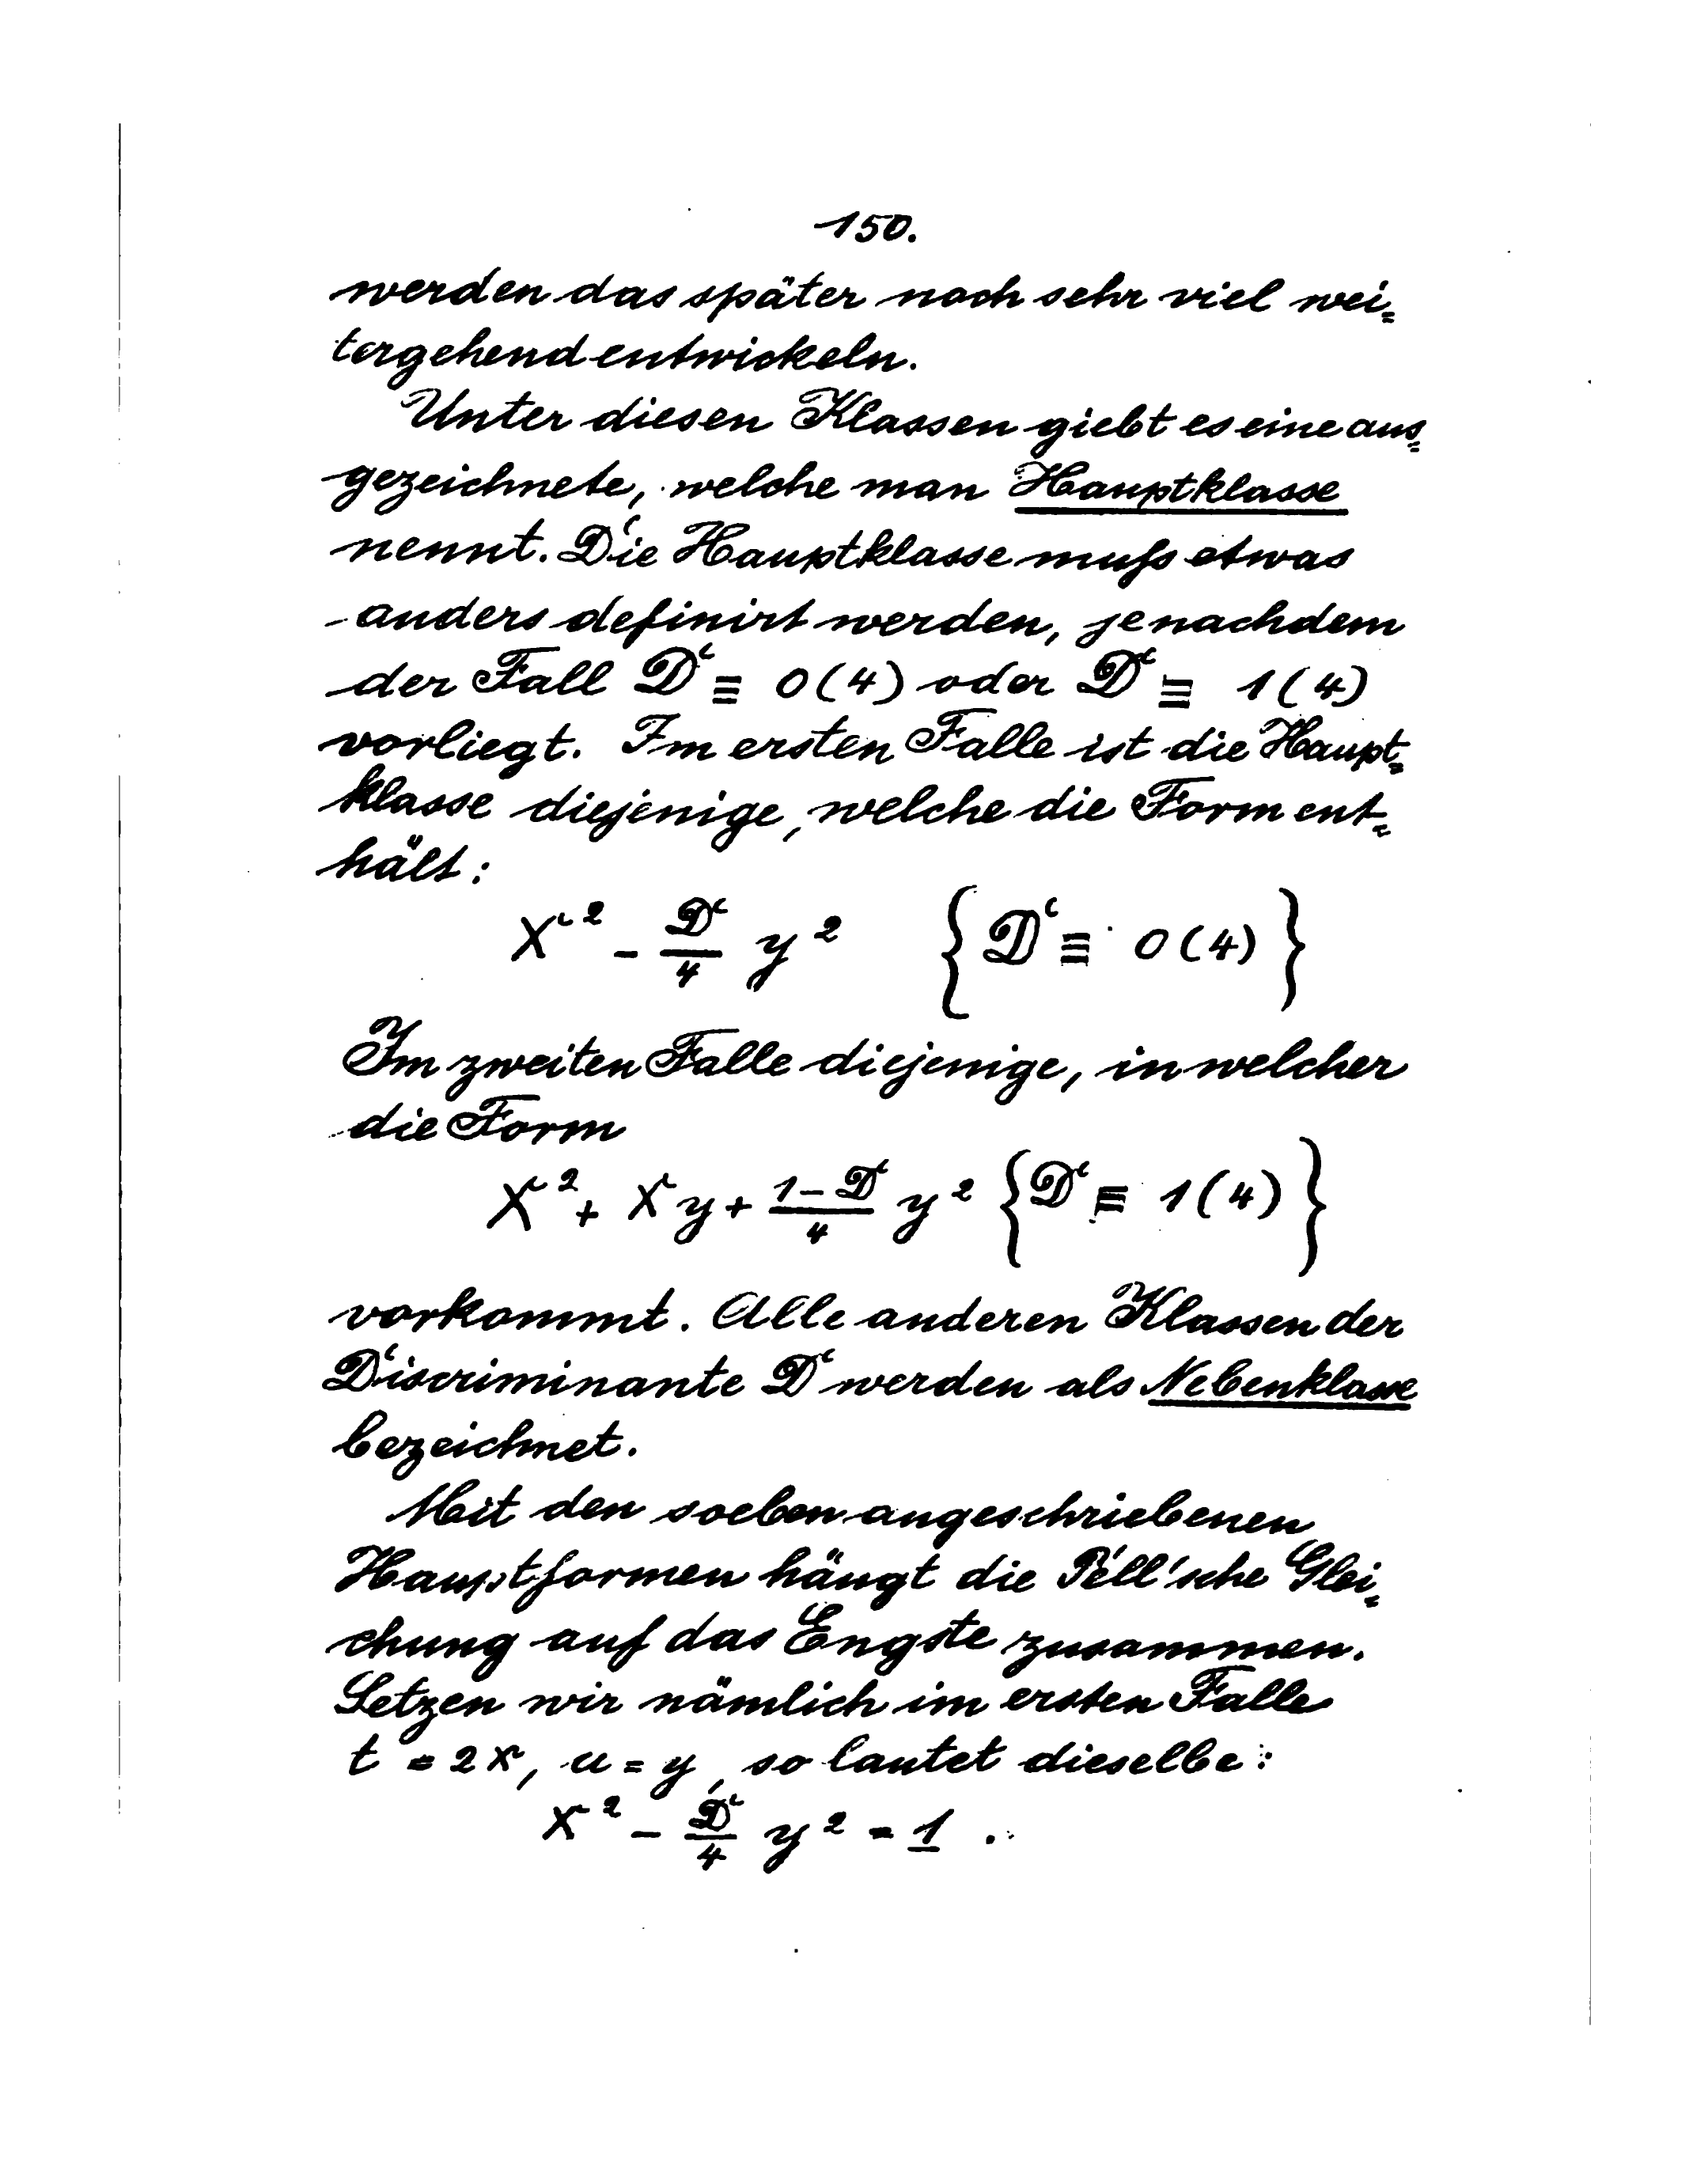 150.
werden das später noch sehr viel wei=
tergehend entwickeln.
Unter diesen Klassen giebt es eine aus=
gezeichnete, welche man Hauptklasse
nennt. Die Hauptklasse muſs etwas
anders definirt werden, jenachdem
der Fall D ≡ 0 (4) oder D ≡ 1 (4)
vorliegt. Im ersten Falle ist die Haupt=
klasse diejenige, welche die Form ent=
hält:
x² - D/4 y² {D ≡ 0 (4)}
Im zweiten Falle diejenige, in welcher
die Form
x² + xy + (1-D)/4 y² {D ≡ 1 (4)}
vorkommt. Alle anderen Klassen der
Discriminante D werden als Nebenklasse
bezeichnet.
Mit den soeben angeschriebenen
Hauptformen hängt die Pell'sche Glei=
chung auf das Engste zusammen.
Setzen wir nämlich im ersten Falle
t = 2x, u = y, so lautet dieselbe:
x² - D/4 y² = 1.